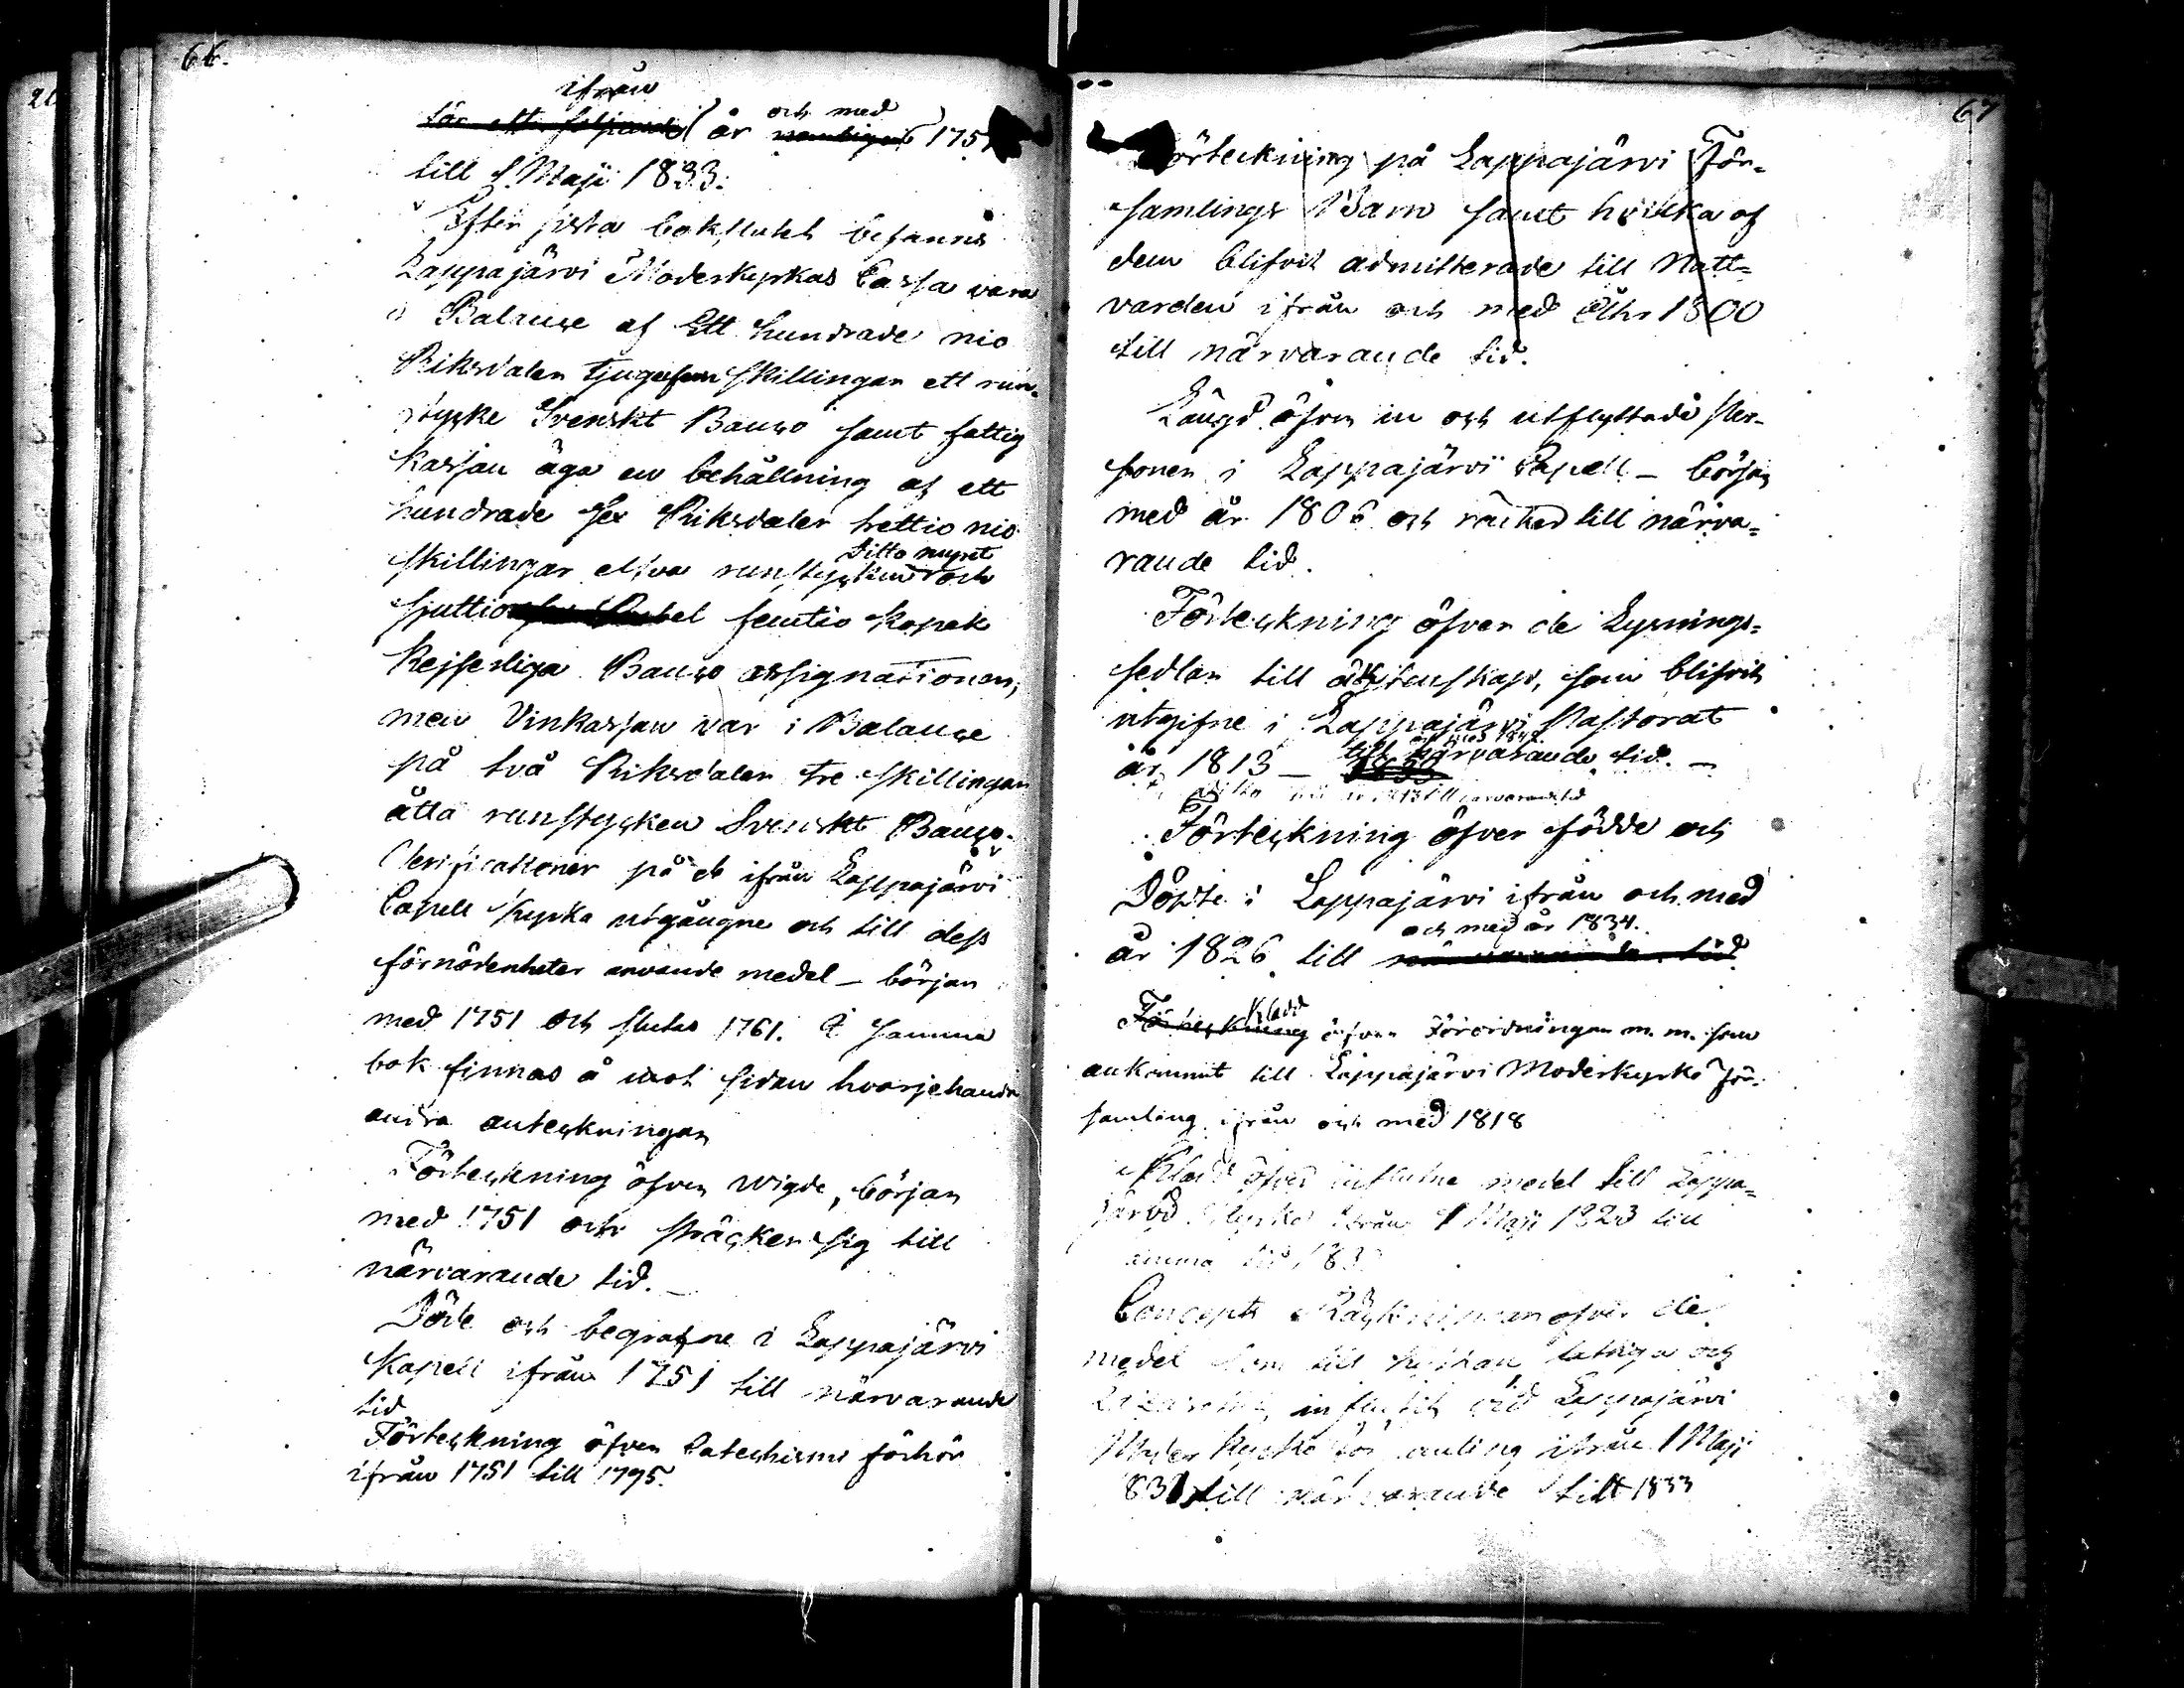 66.
ifrån
för ett följande år och med nemligen 1751
till 1 Maji 1833.
Efter sista bokslutet befanns
Lappajärvi Moderkyrkas Cassa vara
i Balance af Ett hundrade nio
Riksdaler tjugufem skillingar ett run-
stycke Svenskt Banco samt fattig
kassan äga en behållning af ett
hundrade sex Riksdaler trettio nio
skillingar elfva runstycken ditto mynt och
sjuttio Rubel femtio kopek
Kejserliga Banco assignationer,
men Vinkassan var i Balance
på två Riksdaler tre skillingar
åtta runstycken Svenskt Banco.
Verificationer på de ifrån Lappajärvi
Capell kyrka utgångne och till dess
förnödenheter använde medel – börjar
med 1751 och slutas 1761. I samma
bok finnas å mot sidan hvarjehanda
andra anteckningar
Förteckning öfver wigde, börjar
med 1751 och sträcker sig till
närvarande tid. –
Döde och begrafne i Lappajärvi
Kapell ifrån 1751 till närvarande
tid
Förteckning öfver Catechismi förhör
ifrån 1751 till 1795.
67
Förteckning på Lappajärvi För-
samlings Barn samt hvilka af
dem blifvit admitterade till Natt-
varden ifrån och med Åhr 1800
till närvarande tid.
Längd öfver in och utflyttade Per-
soner i Lappajärvi Capell – börjar
med år 1806 och räcker till närva-
rande tid.
Förteckning öfver de Lysnings-
sedlar till äktenskap, som blifvit
utgifne i Lappajärvi Pastorat
år 1813 – till närvarande tid. –
till närvarande tid
Förteckning öfver födde och
Döpte i Lappajärvi ifrån och med
och med år 1834.
år 1826 till närvarande tid.
Kladd
Förteckning öfver Förordningar m. m. som
ankommit till Lappajärvi Moderkyrko För-
samling ifrån och med 1818
Kladd öfver influtne medel till Lappa-
järvi Kyrka ifrån 1 Maji 1823 till
samma tid 183
Concepts Räkningar öfver de
medel som till kyrkan fattiga och
influtit vid Lappajärvi
Moder Kyrko församling ifrån 1 Maji
1831 till närvarande tilt 1833